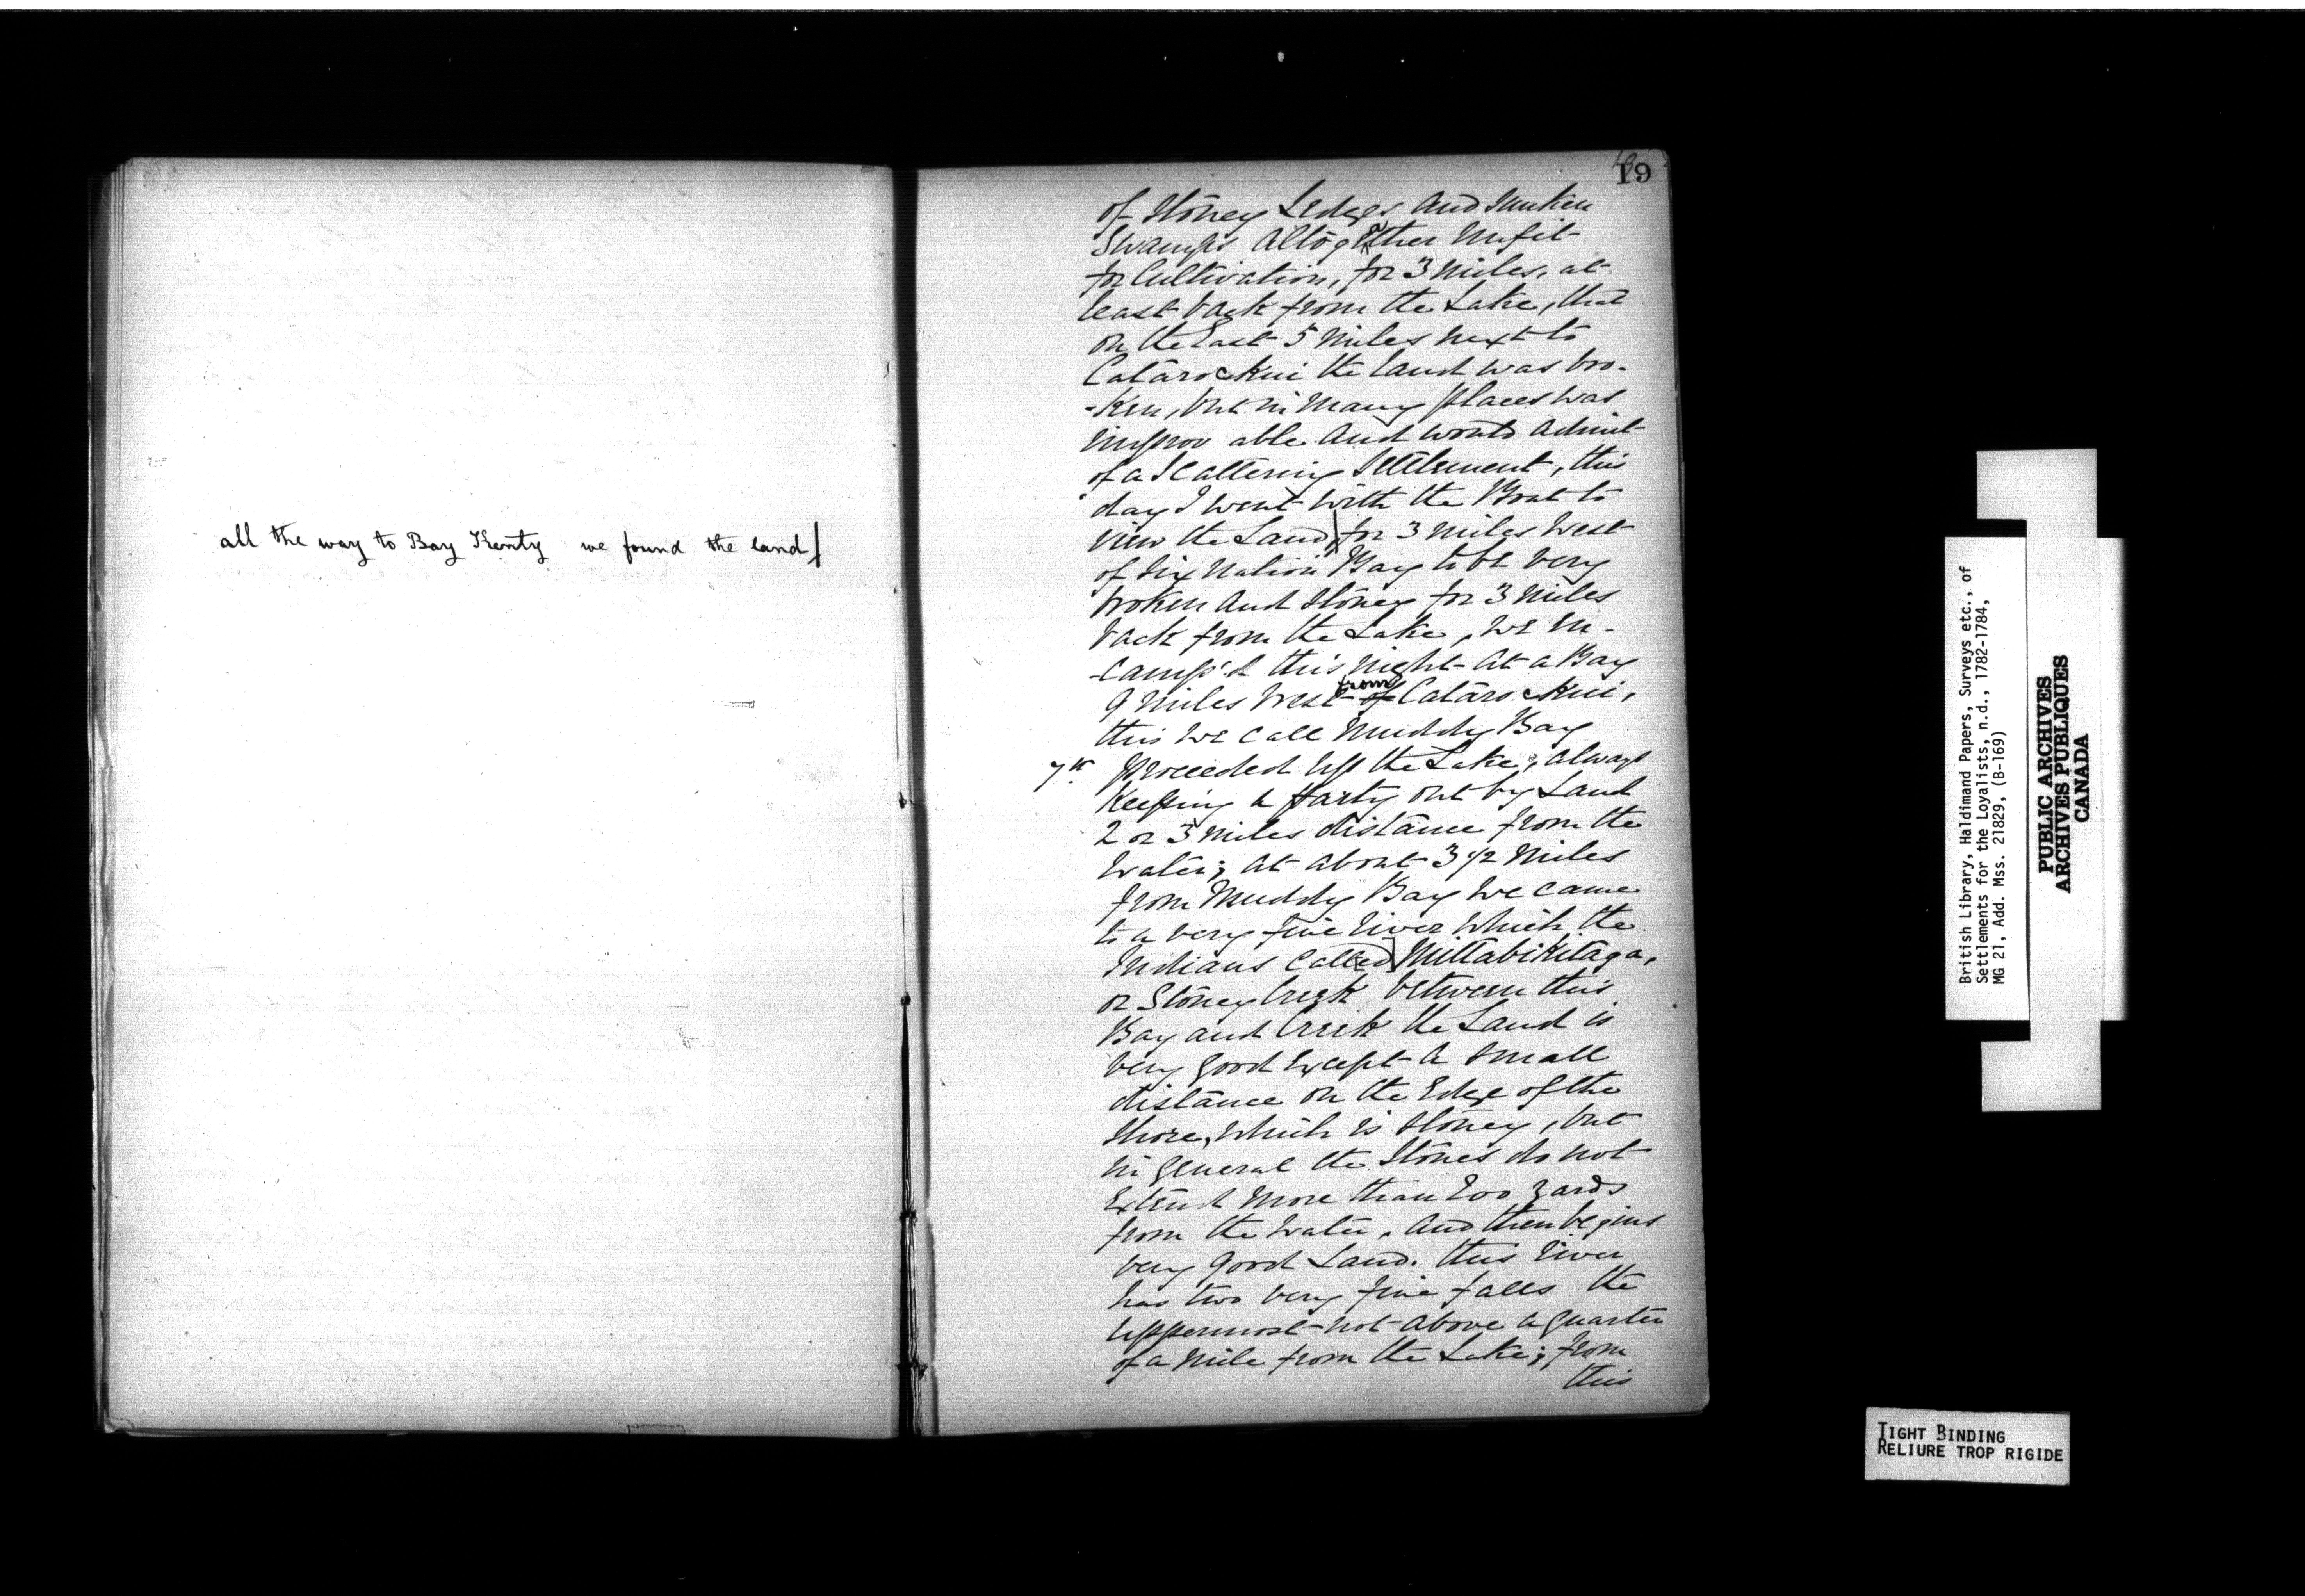 all the way to Bay Kenty we found the land
19
of Stoney Ledges and sunken
Swamps altogether unfit
for Cultivation, for 3 miles, at
least back from the Lake, that
on the East 5 miles next to
Catarockui the land was bro-
-ken, but in many places was
improv able and would admit
of a Scattering Settlement, this
day I went with the Boat to
view the Land, for 3 miles West
of Six Nation Bay to be very
broken and Stoney for 3 miles
back from the Lake, we in-
-camp'd this night at a Bay
from
9 miles West of Catarockui,
this we call Muddy Bay
7th proceeded up the Lake, always
Keeping a party out by Land
2 or 3 miles distance from the
Water; at about 3 1/2 miles
from Muddy Bay we came
to a very fine River which the
Indians called Mittabikitaga,
or Stoney Creek between this
Bay and Creek the Land is
very good Except a small
distance on the Edge of the
Shore, which is Stoney, but
in general the Stones do not
Extend more than 200 yards
from the Water, and then begins
very good Land. this River
has two very fine falls the
uppermost not above a quarter
of a mile from the Lake; from
this
British Library, Haldimand Papers, Surveys etc., of
Settlements for the Loyalists, n.d., 1782-1784,
MG 21, Add. Mss. 21829, (B-169)
PUBLIC ARCHIVES
ARCHIVES PUBLIQUES
CANADA
TIGHT BINDING
RELIURE TROP RIGIDE